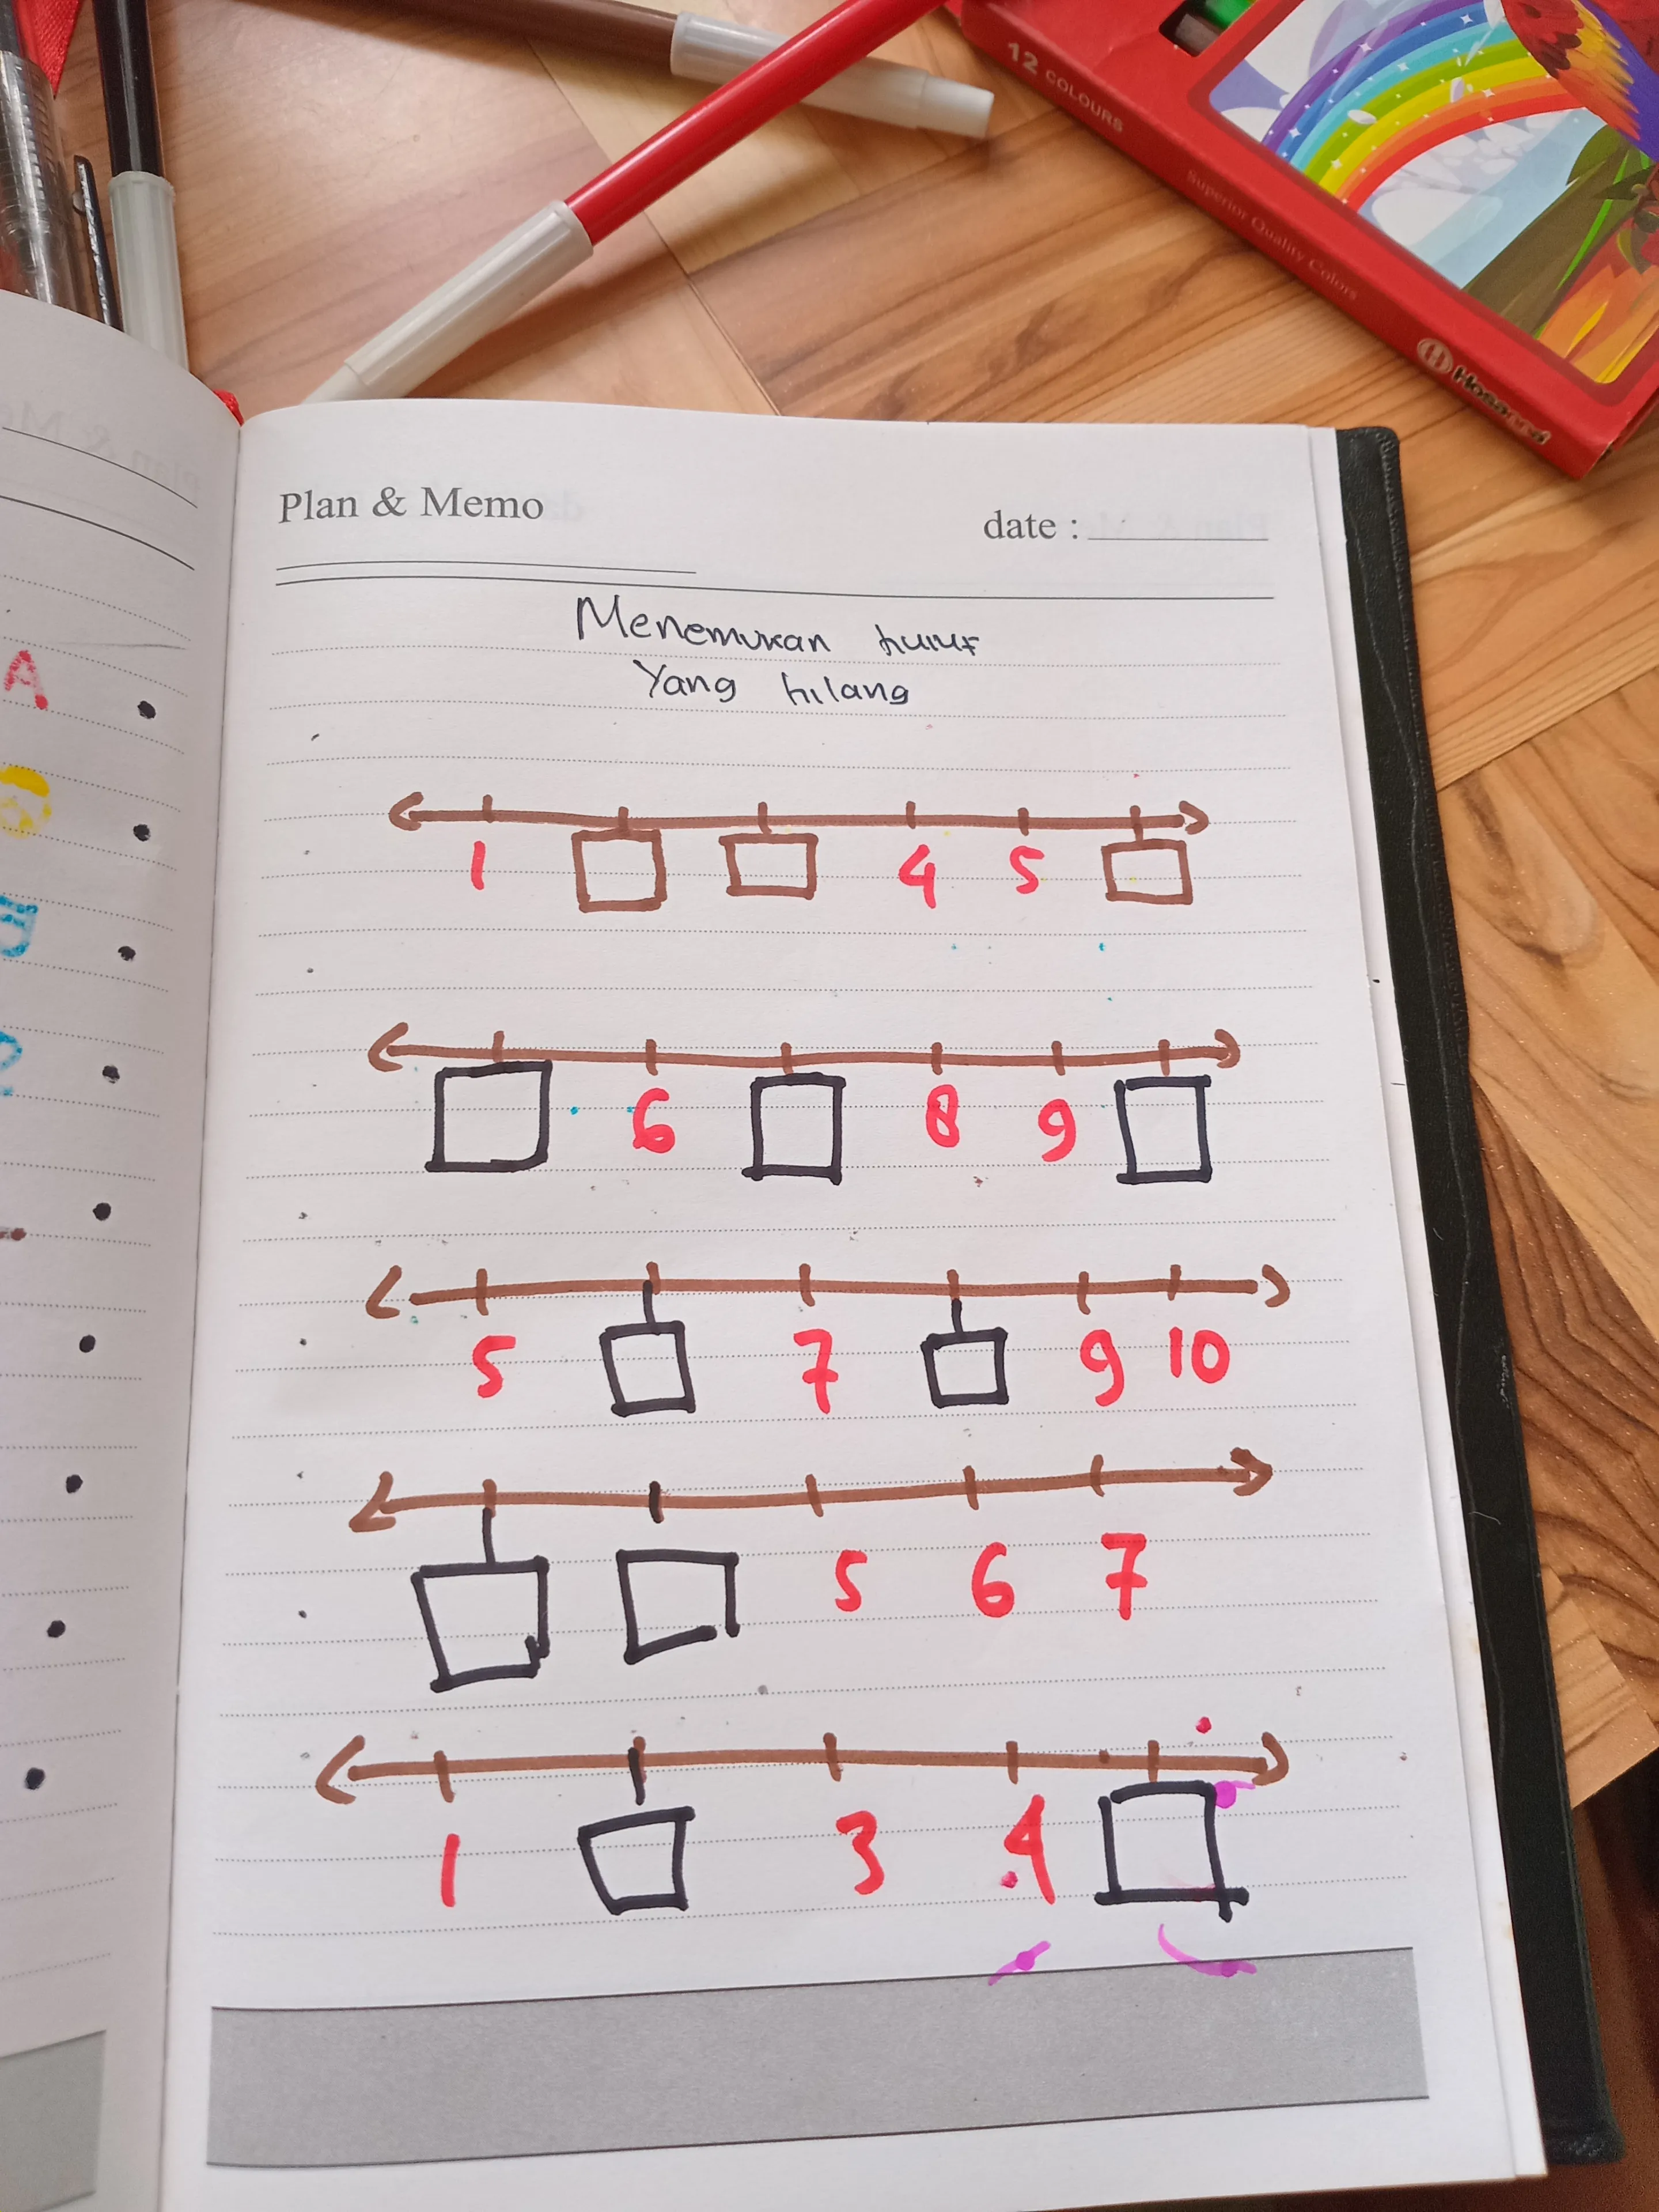 12 COLOURS
Superior Quality Colors
Plan & Memo
date :
Menemukan huruf
Yang hilang
1 4 5
6 8 9
5 7 9 10
5 6 7
1 3 4
A